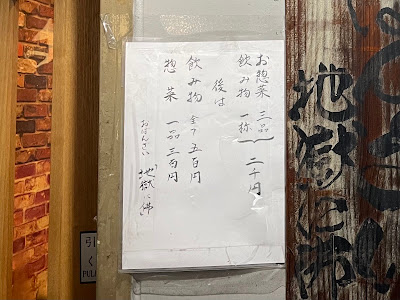 お惣菜 三品
飲み物 一杯 二千円
後は
飲み物 全て 五百円
惣菜 一品 三百円
おばんざい 地獄に佛
地獄に佛
引く
PULL